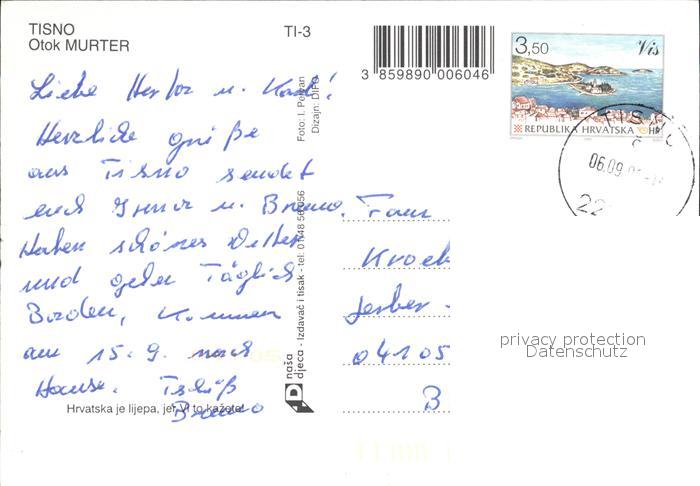 TISNO
Otok MURTER
TI-3
3 859890 006046
3,50
Vis
REPUBLIKA HRVATSKA HP
TISNO
06.09
22
Foto: I. Pervan
Dizajn: DIFO
Liebe Herta u. Karl!
Herzliche grüße
aus Tisno sendet
euch Irma u. Bruno.
Haben schönes Wetter
und gehen Täglich
Baden, Kommen
am 15.9. nach
Hause. Tschüß
Bruno
Fam
Kroeb
04105
B
naša
djeca - Izdavač i tisak - tel: 01/48 56 056
Hrvatska je lijepa, jer Vi to kažete!
privacy protection
Datenschutz